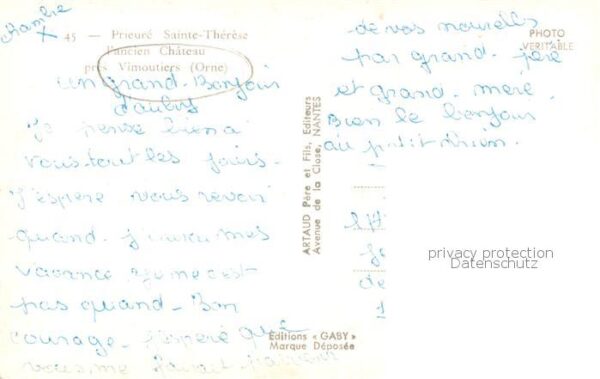 chambre
45 - Prieuré Sainte-Thérèse
l'ancien Château
près Vimoutiers (Orne)
un grand - Bonjour
d'auby
Je pense bien a
vous tout les jours -
J'espere vous revoir
quand - j'aurai mes
vacance je ne c'est
pas quand - Bon
courage - J'espere que
vous me
PHOTO
VERITABLE
de vos nouvelles
par grand - père
et grand - mère
Bien le bonjour
au petit
ARTAUD Père et Fils, Editeurs
Avenue de la Close, NANTES
de
privacy protection
Datenschutz
Editions « GABY »
Marque Déposée